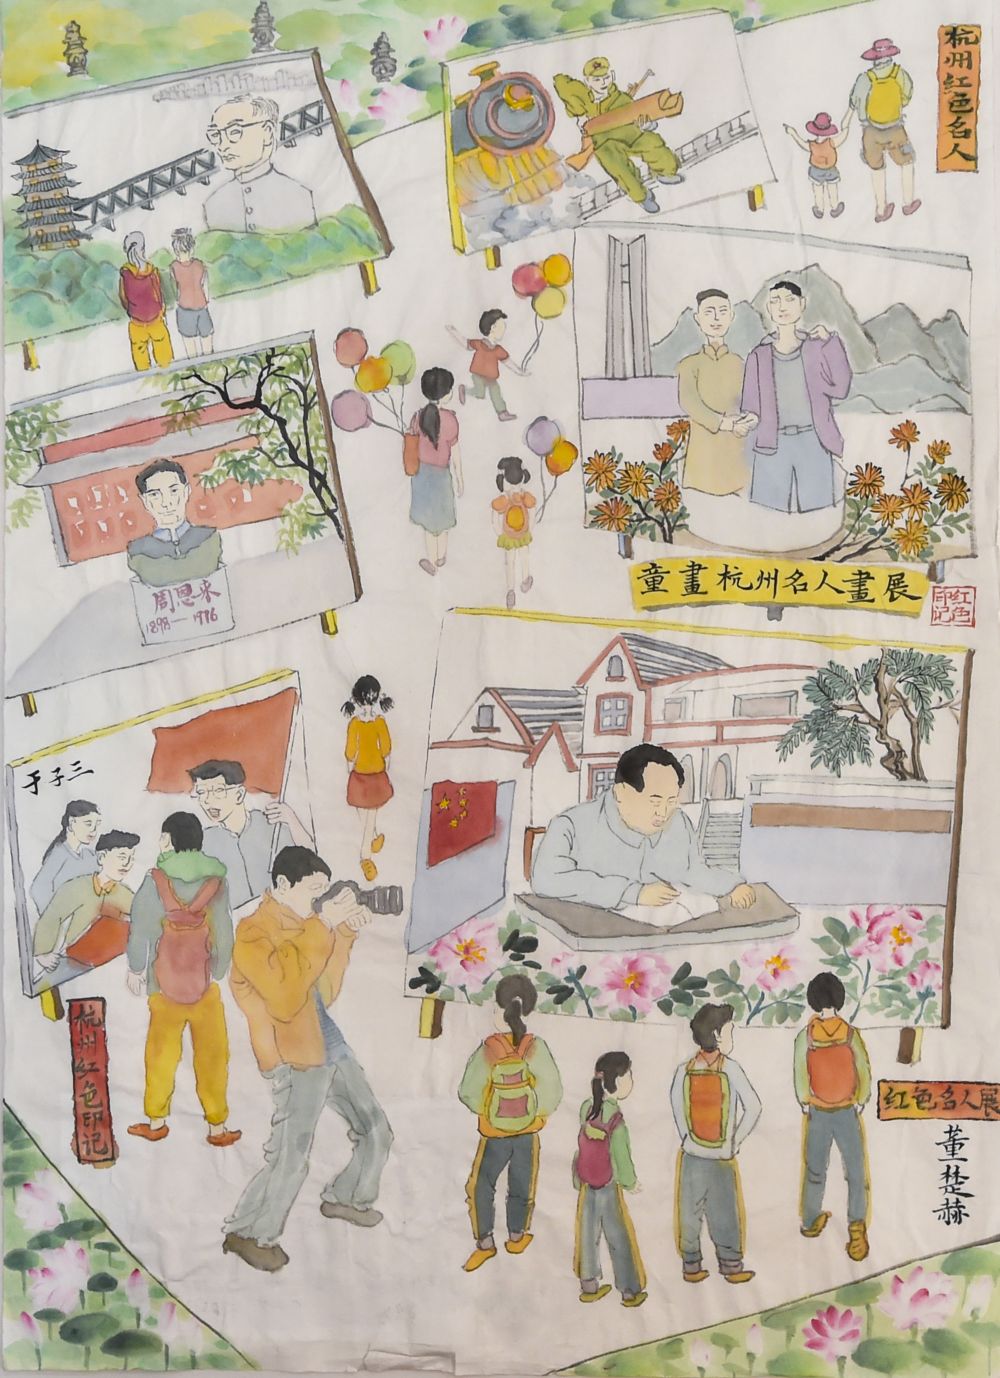 杭州红色名人
周恩来
1898—1976
童畫杭州名人畫展
红色
印记
于子三
杭州红色印记
红色名人展
董楚赫